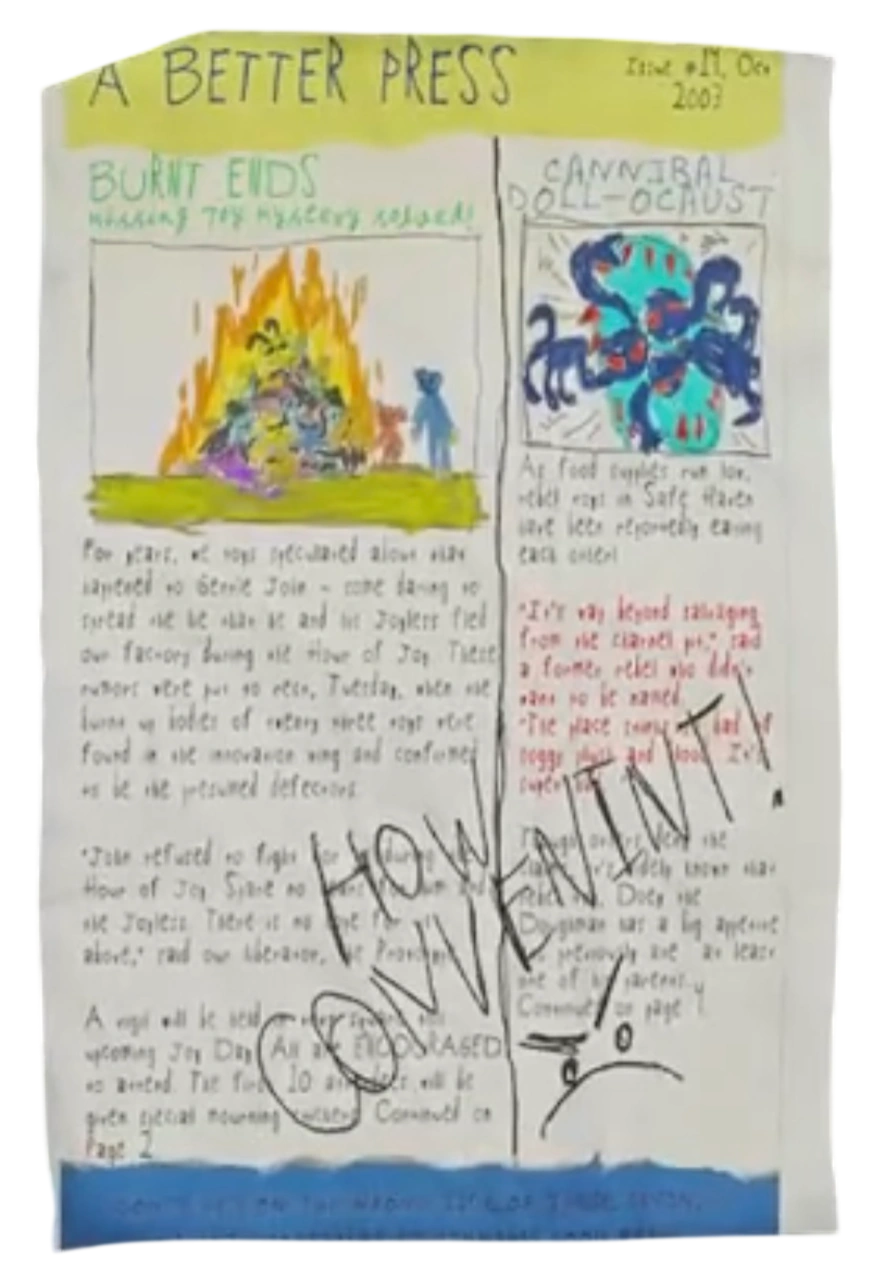 A BETTER PRESS
Issue #17, Oct
2003
BURNT ENDS
Missing Toy Mystery solved!
For years, we toys speculated about what
happened to Gentle John - some daring to
spread the lie that he and his Joyless fled
our factory during the Hour of Joy. These
rumors were put to rest, Tuesday, when the
burnt up bodies of twenty three toys were
found in the innovation wing and confirmed
to be the presumed defectors.
"John refused to fight for us during the
Hour of Joy. Spare no for him and
the Joyless. There is no for us
above," said our liberator, the Prototype
A vigil will be held in town square this
upcoming Joy Day. All are ENCOURAGED
to attend. The first 10 attendees will be
given special mourning stickers. Continued on
Page 2
CANNIBAL
DOLL-OCAUST
As food supplies run low,
rebel toys in Safe Haven
have been reportedly eating
each other!
"It's way beyond salvaging
from the charnel pit," said
a former rebel who didn't
want to be named.
"The place smells bad of
soggy plush and blood. It's
super bad."
Though others deny the
claim, it's widely known that
rebel Doey the
Doughman has a big appetite
previously ate at least
one of his parents...
Continued on page 4
HOW
CONVENINT!
DON'T GET ON THE WRONG SIDE OF THESE SEVEN,